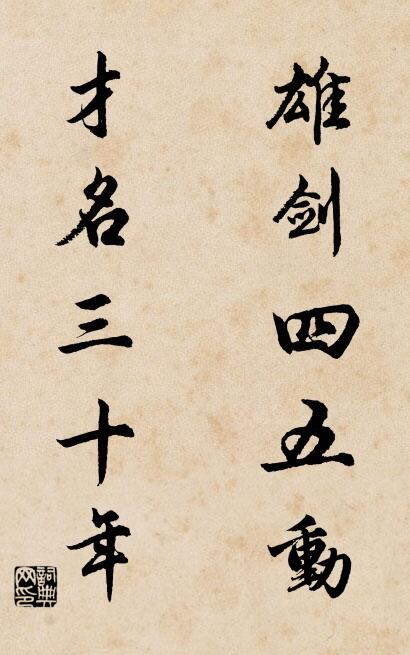 雄剑四五動
才名三十年
詞典网印